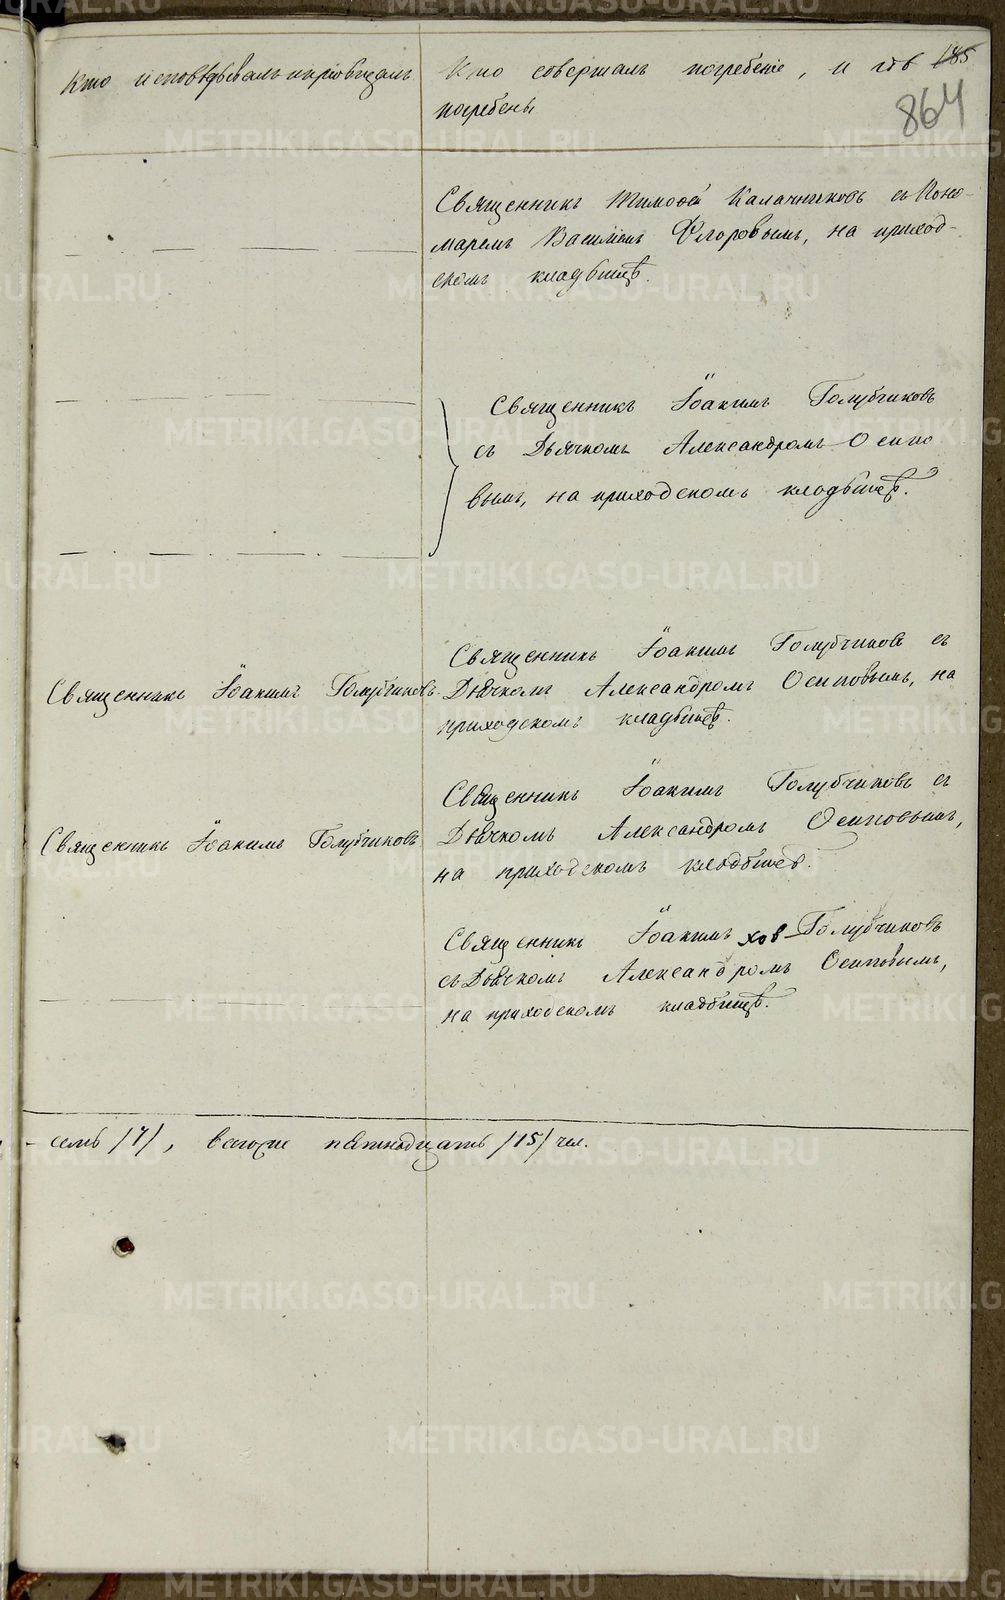 Кто исповѣдывалъ и пріобщалъ
Кто совершалъ погребеніе, и гдѣ
погребены
185
864
Священникъ Тимофей Калачниковъ съ Поно-
маремъ Василіемъ Флоровымъ, на приход-
скомъ кладбищѣ.
Священникъ Іоакимъ Голубчиковъ
съ Дьячкомъ Александромъ Осипо
вымъ, на приходскомъ кладбищѣ.
Священникъ Іоакимъ Голубчиковъ
Священникъ Іоакимъ Голубчиковъ съ
Дьячкомъ Александромъ Осиповымъ, на
приходскомъ кладбищѣ.
Священникъ Іоакимъ Голубчиковъ
Священникъ Іоакимъ Голубчиковъ съ
Дьячкомъ Александромъ Осиповымъ,
на приходскомъ кладбищѣ.
Священникъ Іоакимъ Голубчиковъ
съ Дьячкомъ Александромъ Осиповымъ,
на приходскомъ кладбищѣ.
- семь /7/, пятнадцать /15/ чел.
METRIKI.GASO-URAL.RU